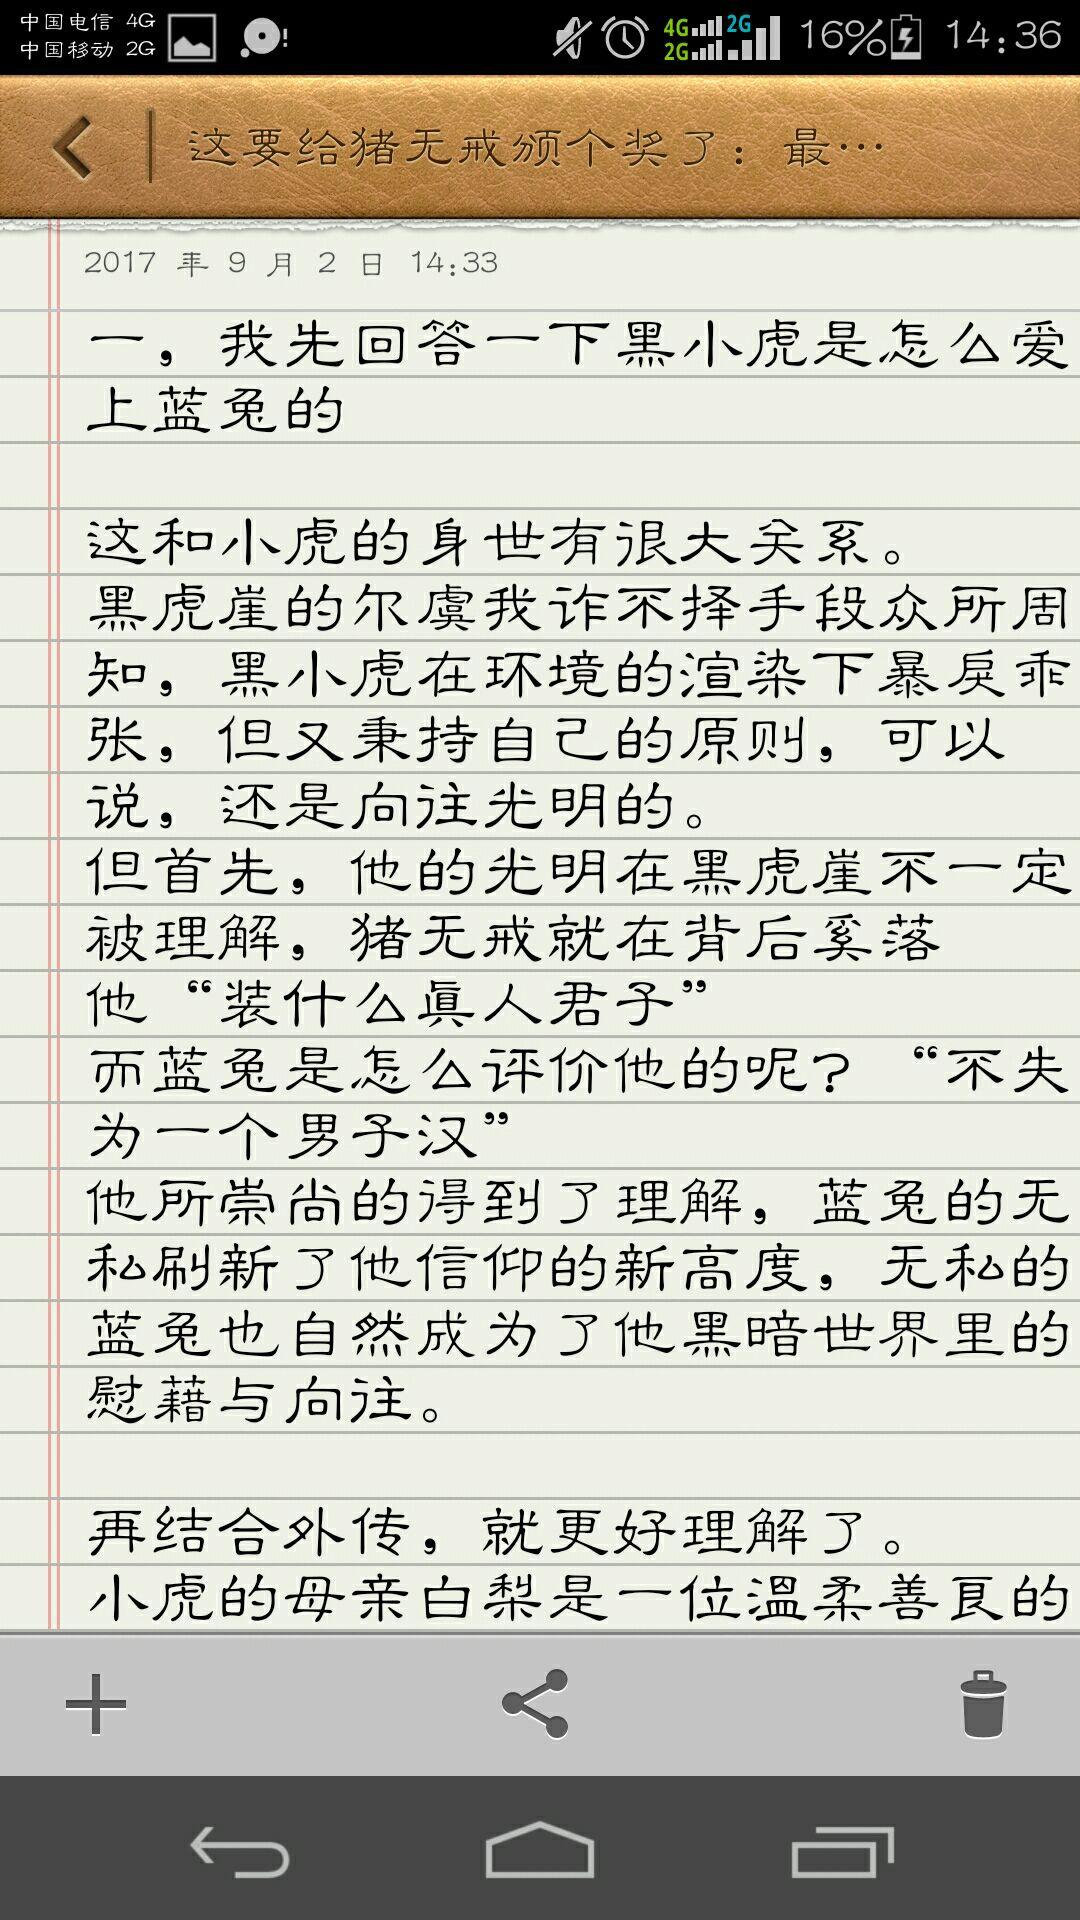 中国电信 4G
中国移动 2G
4G 2G
2G
16% 14:36
这要给猪无戒颁个奖了：最…
2017 年 9 月 2 日 14:33
一，我先回答一下黑小虎是怎么爱
上蓝兔的
这和小虎的身世有很大关系。
黑虎崖的尔虞我诈不择手段众所周
知，黑小虎在环境的渲染下暴戾乖
张，但又秉持自己的原则，可以
说，还是向往光明的。
但首先，他的光明在黑虎崖不一定
被理解，猪无戒就在背后奚落
他“装什么真人君子”
而蓝兔是怎么评价他的呢？“不失
为一个男子汉”
他所崇尚的得到了理解，蓝兔的无
私刷新了他信仰的新高度，无私的
蓝兔也自然成为了他黑暗世界里的
慰藉与向往。
再结合外传，就更好理解了。
小虎的母亲白梨是一位温柔善良的